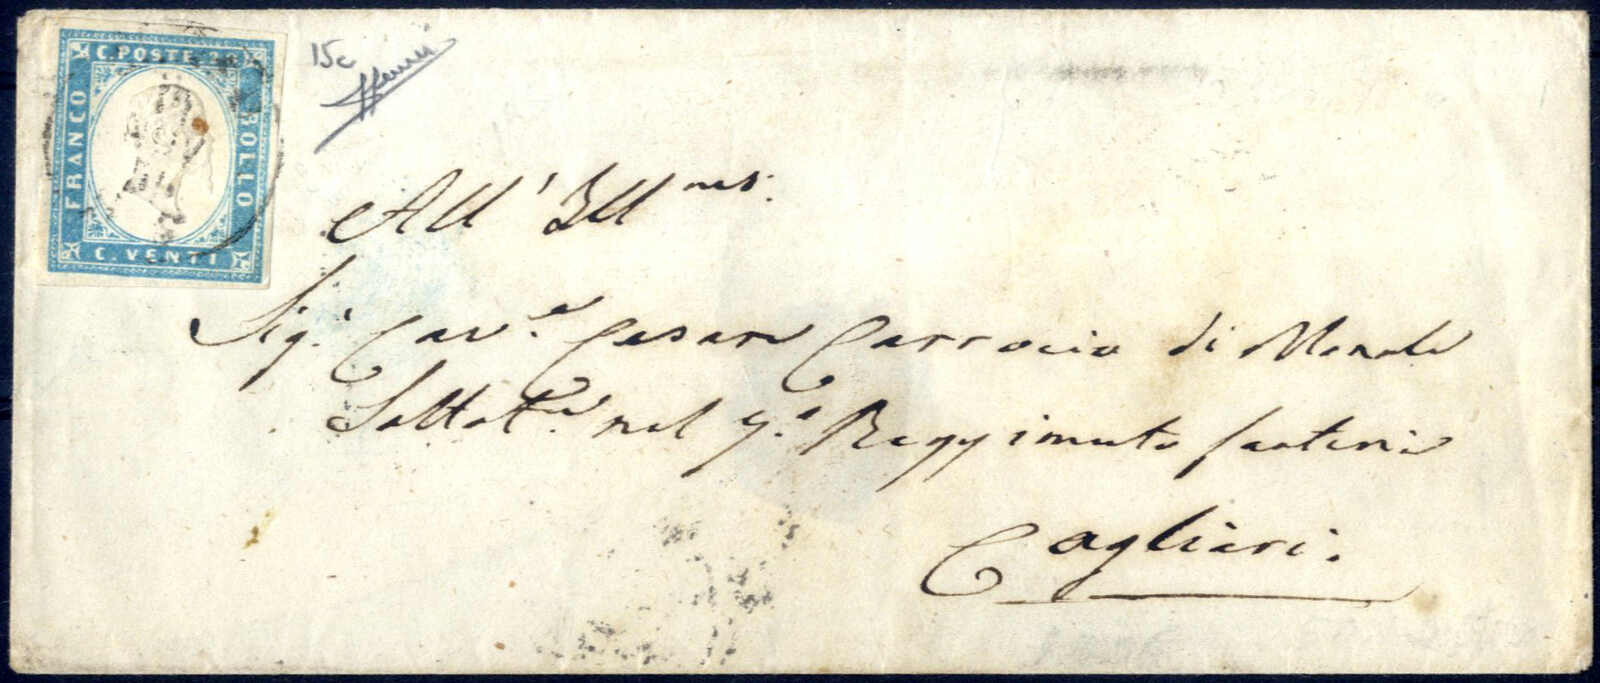 C. POSTE 20
FRANCO
BOLLO
C. VENTI
15c
All' Ill mo.
Sig.r Cav.e Cesare Carrocio di Monale
Sottot.te nel 7.o Reggimento fanteria
Cagliari.